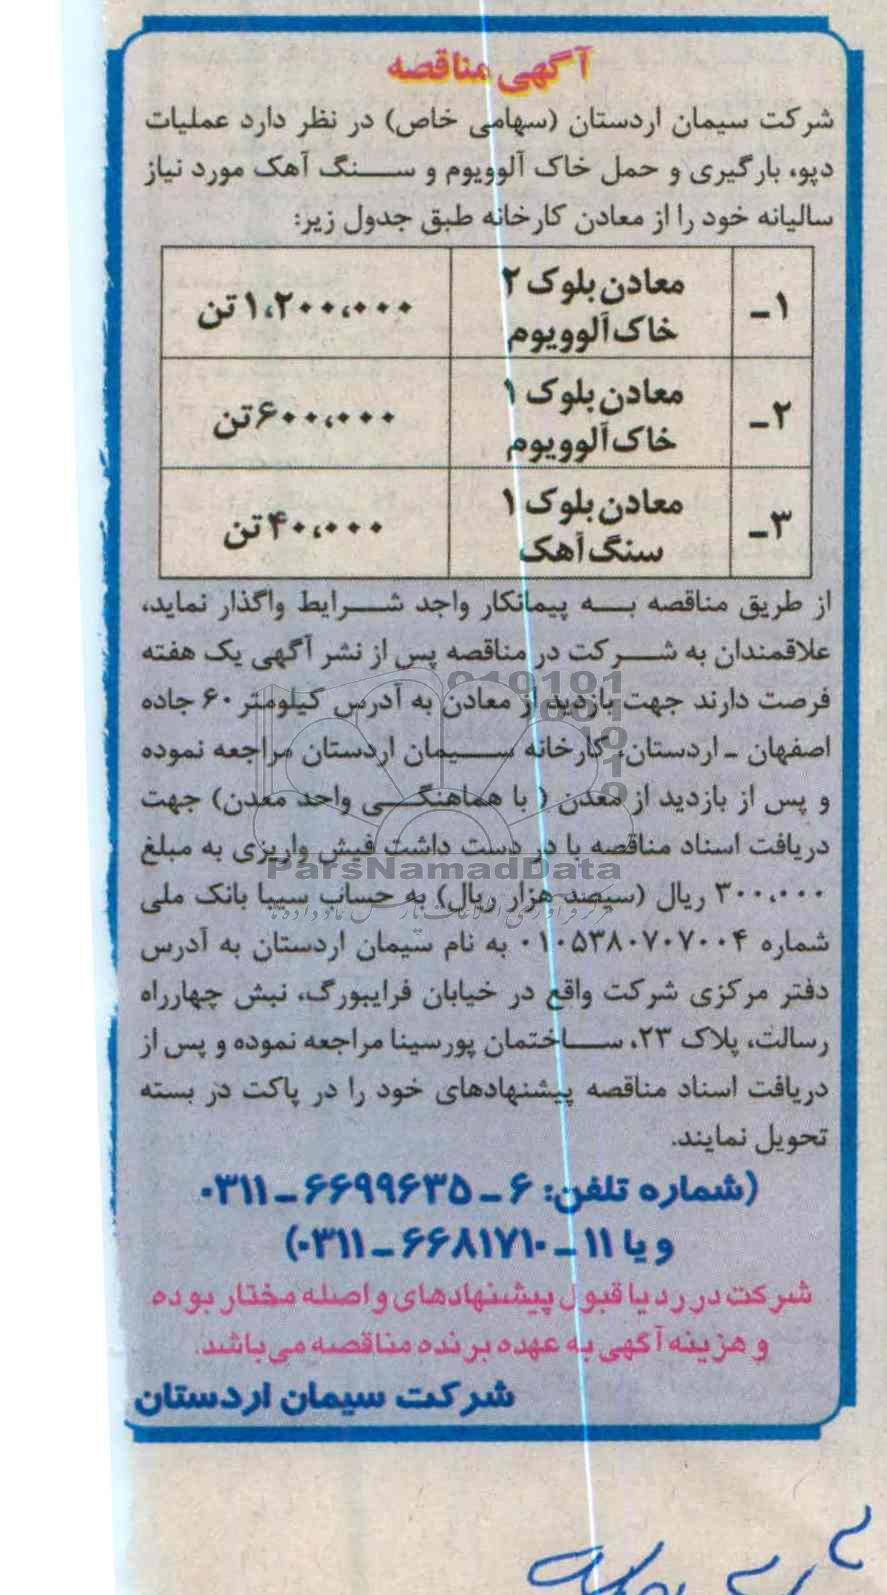 آگهی مناقصه
شرکت سیمان اردستان (سهامی خاص) در نظر دارد عملیات
دپو، بارگیری و حمل خاک آلوویوم و سنگ آهک مورد نیاز
سالیانه خود را از معادن کارخانه طبق جدول زیر:
۱- معادن بلوک ۲ خاک آلوویوم ۱،۲۰۰،۰۰۰ تن
۲- معادن بلوک ۱ خاک آلوویوم ۶۰۰،۰۰۰ تن
۳- معادن بلوک ۱ سنگ آهک ۴۰،۰۰۰ تن
از طریق مناقصه به پیمانکار واجد شرایط واگذار نماید،
علاقمندان به شرکت در مناقصه پس از نشر آگهی یک هفته
فرصت دارند جهت بازدید از معادن به آدرس کیلومتر ۶۰ جاده
اصفهان - اردستان، کارخانه سیمان اردستان مراجعه نموده
و پس از بازدید از معدن ( با هماهنگی واحد معدن) جهت
دریافت اسناد مناقصه با در دست داشت فیش واریزی به مبلغ
ParsNamadData
۳۰۰،۰۰۰ ریال (سیصد هزار ریال) به حساب سیبا بانک ملی
شماره ۰۱۰۵۳۸۰۷۰۷۰۰۴ به نام سیمان اردستان به آدرس
دفتر مرکزی شرکت واقع در خیابان فرایبورگ، نبش چهارراه
رسالت، پلاک ۲۳، ساختمان پورسینا مراجعه نموده و پس از
دریافت اسناد مناقصه پیشنهادهای خود را در پاکت در بسته
تحویل نمایند.
(شماره تلفن: ۶ - ۶۶۹۹۶۳۵ - ۰۳۱۱
و یا ۱۱ - ۶۶۸۱۷۱۰ - ۰۳۱۱)
شرکت در رد یا قبول پیشنهادهای واصله مختار بوده
و هزینه آگهی به عهده برنده مناقصه می‌باشد.
شرکت سیمان اردستان